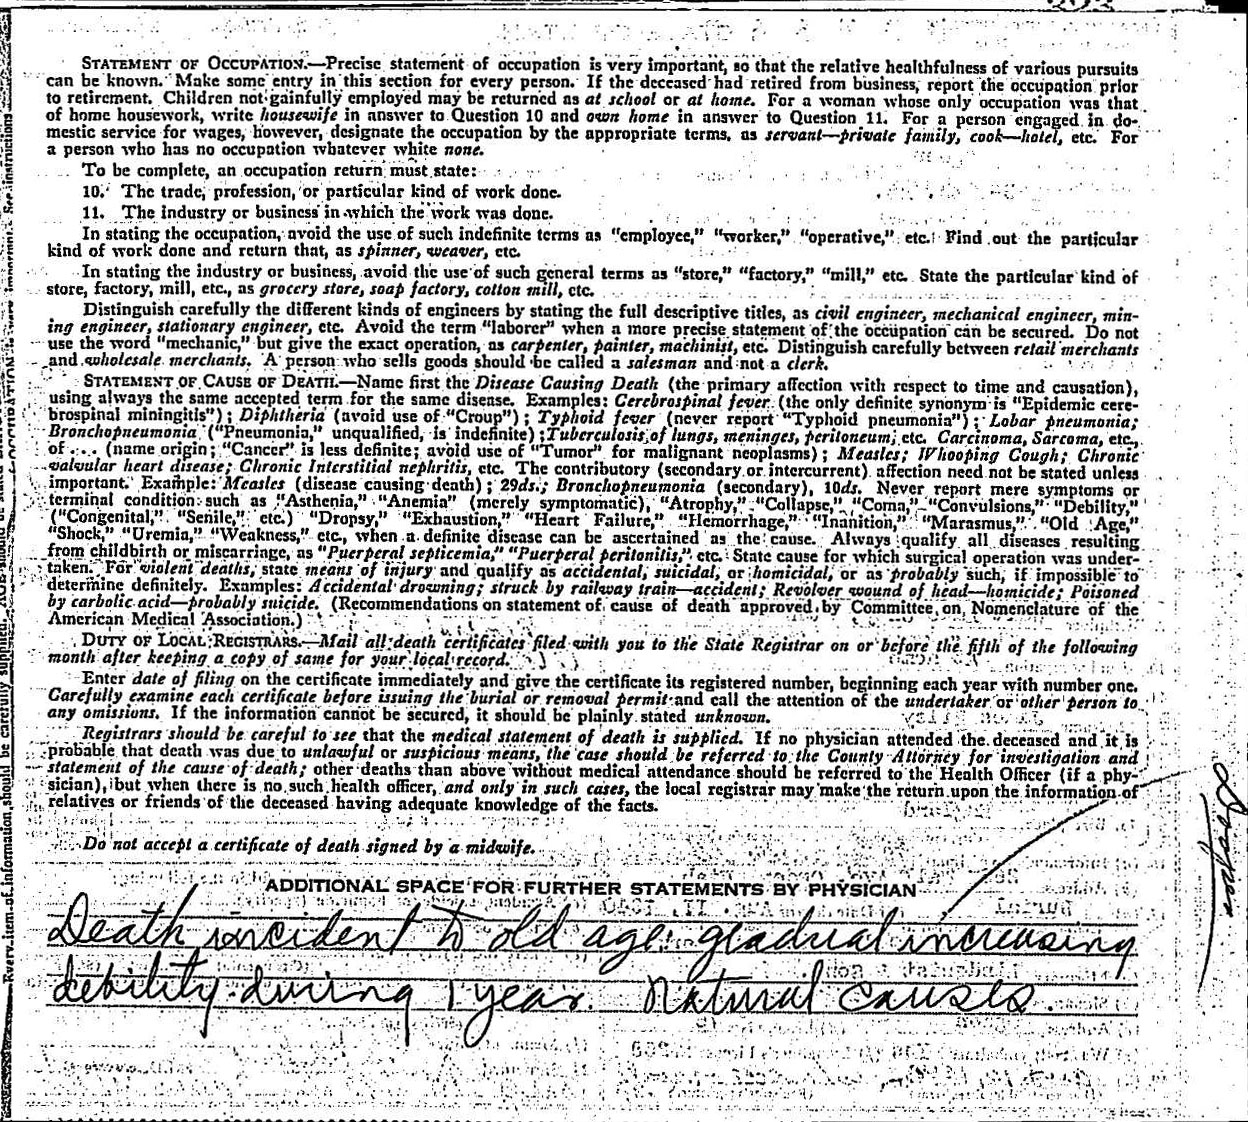 STATEMENT OF OCCUPATION.—Precise statement of occupation is very important, so that the relative healthfulness of various pursuits
can be known. Make some entry in this section for every person. If the deceased had retired from business, report the occupation prior
to retirement. Children not gainfully employed may be returned as at school or at home. For a woman whose only occupation was that
of home housework, write housewife in answer to Question 10 and own home in answer to Question 11. For a person engaged in do-
mestic service for wages, however, designate the occupation by the appropriate terms, as servant—private family, cook—hotel, etc. For
a person who has no occupation whatever white none.
To be complete, an occupation return must state:
10. The trade, profession, or particular kind of work done.
11. The industry or business in which the work was done.
In stating the occupation, avoid the use of such indefinite terms as "employee," "worker," "operative," etc. Find out the particular
kind of work done and return that, as spinner, weaver, etc.
In stating the industry or business, avoid the use of such general terms as "store," "factory," "mill," etc. State the particular kind of
store, factory, mill, etc., as grocery store, soap factory, cotton mill, etc.
Distinguish carefully the different kinds of engineers by stating the full descriptive titles, as civil engineer, mechanical engineer, min-
ing engineer, stationary engineer, etc. Avoid the term "laborer" when a more precise statement of the occupation can be secured. Do not
use the word "mechanic," but give the exact operation, as carpenter, painter, machinist, etc. Distinguish carefully between retail merchants
and wholesale merchants. A person who sells goods should be called a salesman and not a clerk.
STATEMENT OF CAUSE OF DEATH.—Name first the Disease Causing Death (the primary affection with respect to time and causation),
using always the same accepted term for the same disease. Examples: Cerebrospinal fever (the only definite synonym is "Epidemic cere-
brospinal miningitis"); Diphtheria (avoid use of "Croup"); Typhoid fever (never report "Typhoid pneumonia"); Lobar pneumonia;
Bronchopneumonia ("Pneumonia," unqualified, is indefinite); Tuberculosis of lungs, meninges, peritoneum, etc. Carcinoma, Sarcoma, etc.,
of .... (name origin; "Cancer" is less definite; avoid use of "Tumor" for malignant neoplasms); Measles; Whooping Cough; Chronic
valvular heart disease; Chronic Interstitial nephritis, etc. The contributory (secondary or intercurrent) affection need not be stated unless
important. Example: Measles (disease causing death); 29ds.; Bronchopneumonia (secondary), 10ds. Never report mere symptoms or
terminal condition such as "Asthenia," "Anemia" (merely symptomatic), "Atrophy," "Collapse," "Coma," "Convulsions," "Debility,"
("Congenital," "Senile," etc.) "Dropsy," "Exhaustion," "Heart Failure," "Hemorrhage," "Inanition," "Marasmus," "Old Age,"
"Shock," "Uremia," "Weakness," etc., when a definite disease can be ascertained as the cause. Always qualify all diseases resulting
from childbirth or miscarriage, as "Puerperal septicemia," "Puerperal peritonitis," etc. State cause for which surgical operation was under-
taken. For violent deaths, state means of injury and qualify as accidental, suicidal, or homicidal, or as probably such, if impossible to
determine definitely. Examples: Accidental drowning; struck by railway train—accident; Revolver wound of head—homicide; Poisoned
by carbolic acid—probably suicide. (Recommendations on statement of cause of death approved by Committee on Nomenclature of the
American Medical Association.)
DUTY OF LOCAL REGISTRARS.—Mail all death certificates filed with you to the State Registrar on or before the fifth of the following
month after keeping a copy of same for your local record.
Enter date of filing on the certificate immediately and give the certificate its registered number, beginning each year with number one.
Carefully examine each certificate before issuing the burial or removal permit and call the attention of the undertaker or other person to
any omissions. If the information cannot be secured, it should be plainly stated unknown.
Registrars should be careful to see that the medical statement of death is supplied. If no physician attended the deceased and it is
probable that death was due to unlawful or suspicious means, the case should be referred to the County Attorney for investigation and
statement of the cause of death; other deaths than above without medical attendance should be referred to the Health Officer (if a phy-
sician), but when there is no such health officer, and only in such cases, the local registrar may make the return upon the information of
relatives or friends of the deceased having adequate knowledge of the facts.
Do not accept a certificate of death signed by a midwife.
ADDITIONAL SPACE FOR FURTHER STATEMENTS BY PHYSICIAN
Death incident to old age. gradual increasing
debility during 1 year. Natural causes.